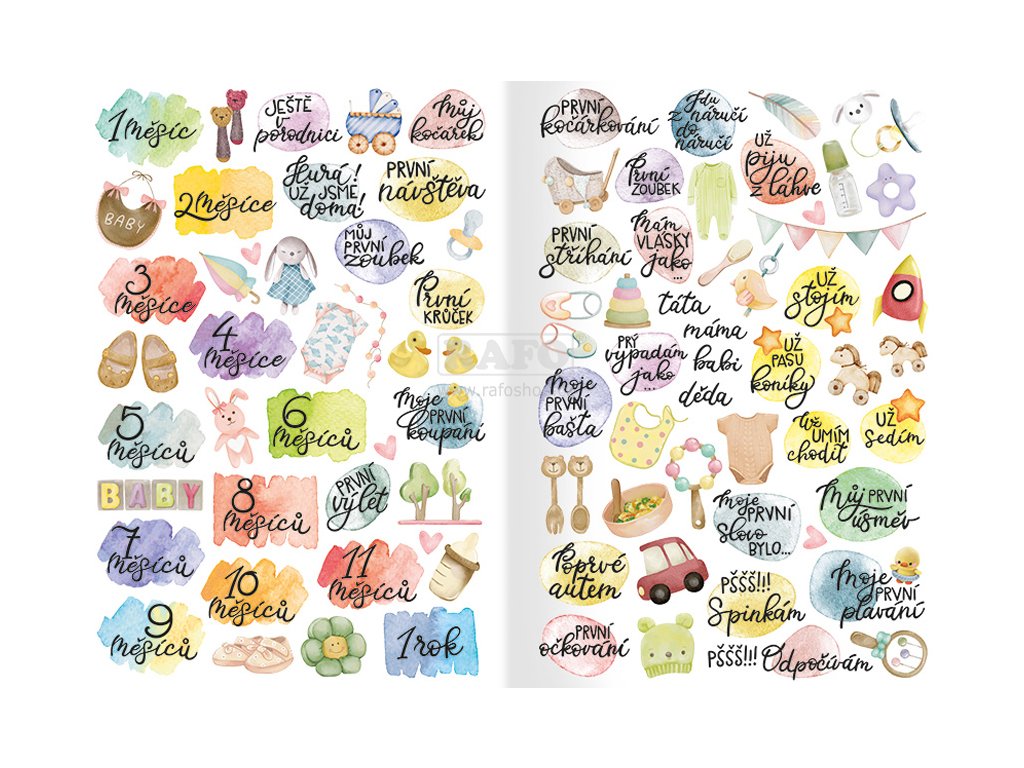 1 Měsíc
JEŠTĚ
v
porodnici
Můj
kočárek
BABY
2 Měsíce
Hurá!
UŽ JSME
doma!
PRVNÍ
návštěva
MŮJ
PRVNÍ
zoubek
3
Měsíce
První
KRŮČEK
4
Měsíce
5
Měsíců
6
Měsíců
Moje
PRVNÍ
koupání
BABY
8
Měsíců
PRVNÍ
výlet
7
Měsíců
10
Měsíců
11
Měsíců
9
Měsíců
1 rok
PRVNÍ
kočárkování
Jdu
z náručí
do
náručí
UŽ
piju
z lahve
První
ZOUBEK
PRVNÍ
stříhání
Mám
VLÁSKY
jako
...
UŽ
stojím
táta
máma
babi
děda
PRÝ
vypadám
jako
...
UŽ
PASU
koníky
Moje
PRVNÍ
bašta
Už
UMÍM
chodit
UŽ
sedím
Moje
PRVNÍ
slovo
BYLO...
Můj PRVNÍ
úsměv
Poprvé
autem
PŠŠŠ!!!
Spinkám
Moje
PRVNÍ
plavání
PRVNÍ
očkování
PŠŠŠ!!! Odpočívám
RAFO
www.rafosho